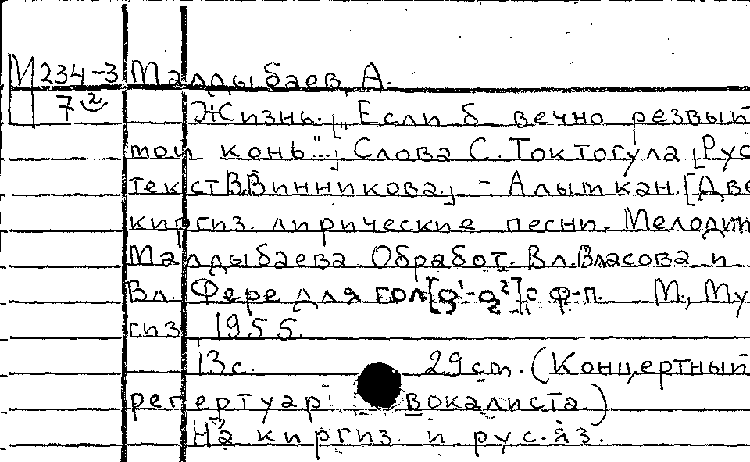 М 234-3 Малдыбаев, А.
7 2 Жизнь. „Если б вечно резвый
мой конь". Слова С. Токтогула [Рус
текст В. Винникова]. - Алымкан. [Две
киргиз. лирические песни. Мелодии
Малдыбаева. Обработ. Вл. Власова и
Вл. Фере для гол[g¹-g²] с ф-п. М., Му
гиз 1955.
13 с. 29 см. (Концертный
репертуар вокалиста.)
На киргиз. и рус. яз.